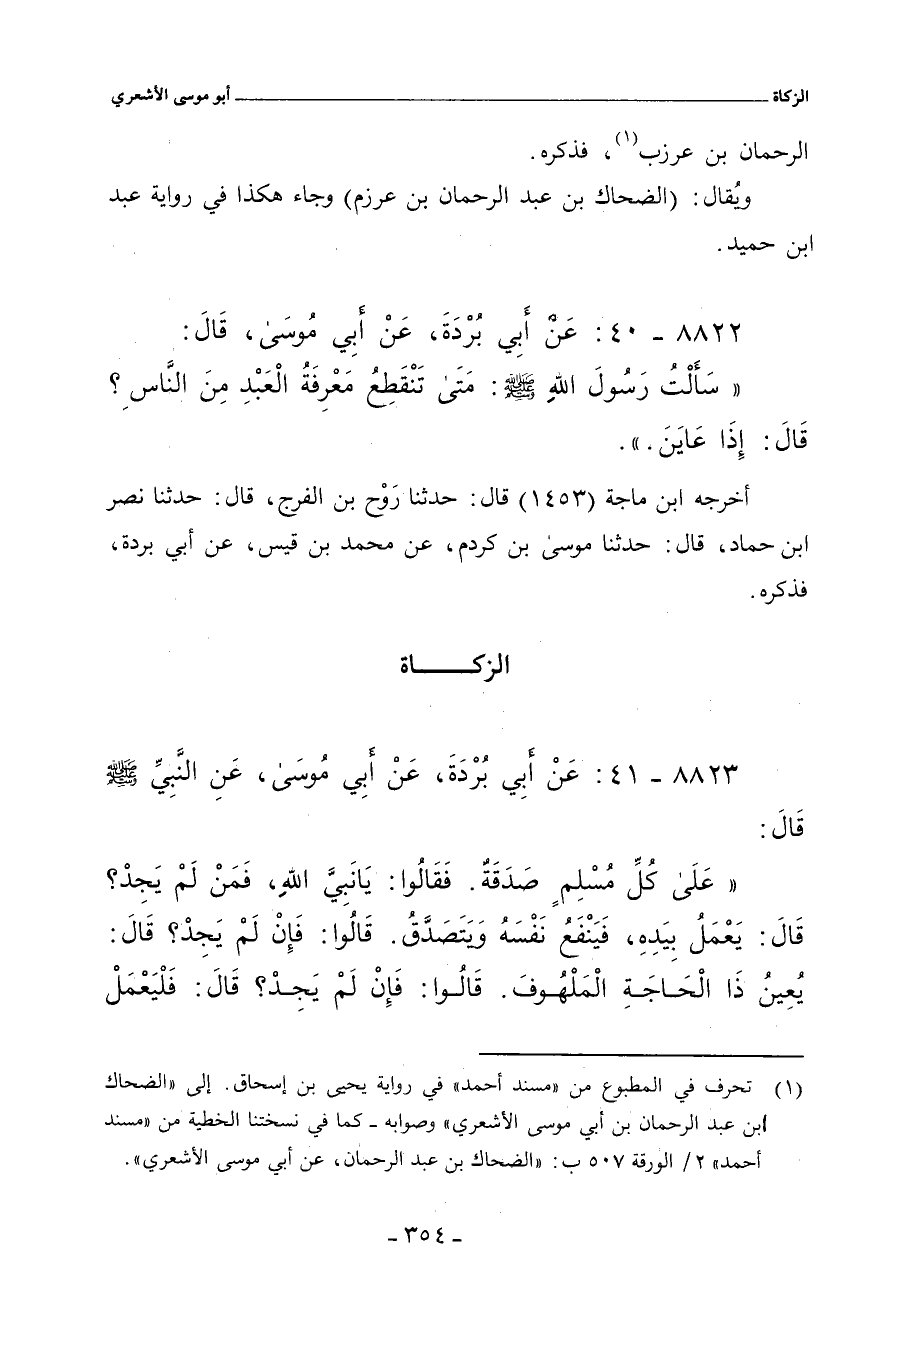 الزكاة ــــــــــــــــــــــــــــــــــــــــ أبو موسى الأشعري
الرحمان بن عرزب(١)، فذكره.
ويُقال: (الضحاك بن عبد الرحمان بن عرزم) وجاء هكذا في رواية عبد
ابن حميد.
٨٨٢٢ ـ ٤٠: عَنْ أَبِي بُرْدَةَ، عَنْ أَبِي مُوسَىٰ، قَالَ:
« سَأَلْتُ رَسُولَ اللهِ ﷺ: مَتَىٰ تَنْقَطِعُ مَعْرِفَةُ الْعَبْدِ مِنَ النَّاسِ؟
قَالَ: إِذَا عَايَنَ.».
أخرجه ابن ماجة (١٤٥٣) قال: حدثنا رَوْح بن الفرج، قال: حدثنا نصر
ابن حماد، قال: حدثنا موسىٰ بن كردم، عن محمد بن قيس، عن أبي بردة،
فذكره.
الزكـــــاة
٨٨٢٣ ـ ٤١: عَنْ أَبِي بُرْدَةَ، عَنْ أَبِي مُوسَىٰ، عَنِ النَّبِيِّ ﷺ
قَالَ:
« عَلَىٰ كُلِّ مُسْلِمٍ صَدَقَةٌ. فَقَالُوا: يَانَبِيَّ اللهِ، فَمَنْ لَمْ يَجِدْ؟
قَالَ: يَعْمَلُ بِيَدِهِ، فَيَنْفَعُ نَفْسَهُ وَيَتَصَدَّقُ. قَالُوا: فَإِنْ لَمْ يَجِدْ؟ قَالَ:
يُعِينُ ذَا الْحَاجَةِ الْمَلْهُوفَ. قَالُوا: فَإِنْ لَمْ يَجِدْ؟ قَالَ: فَلْيَعْمَلْ
(١) تحرف في المطبوع من «مسند أحمد» في رواية يحيى بن إسحاق. إلى «الضحاك
ابن عبد الرحمان بن أبي موسى الأشعري» وصوابه ـ كما في نسختنا الخطية من «مسند
أحمد» ٢/ الورقة ٥٠٧ ب: «الضحاك بن عبد الرحمان، عن أبي موسى الأشعري».
ـ ٣٥٤ ـ